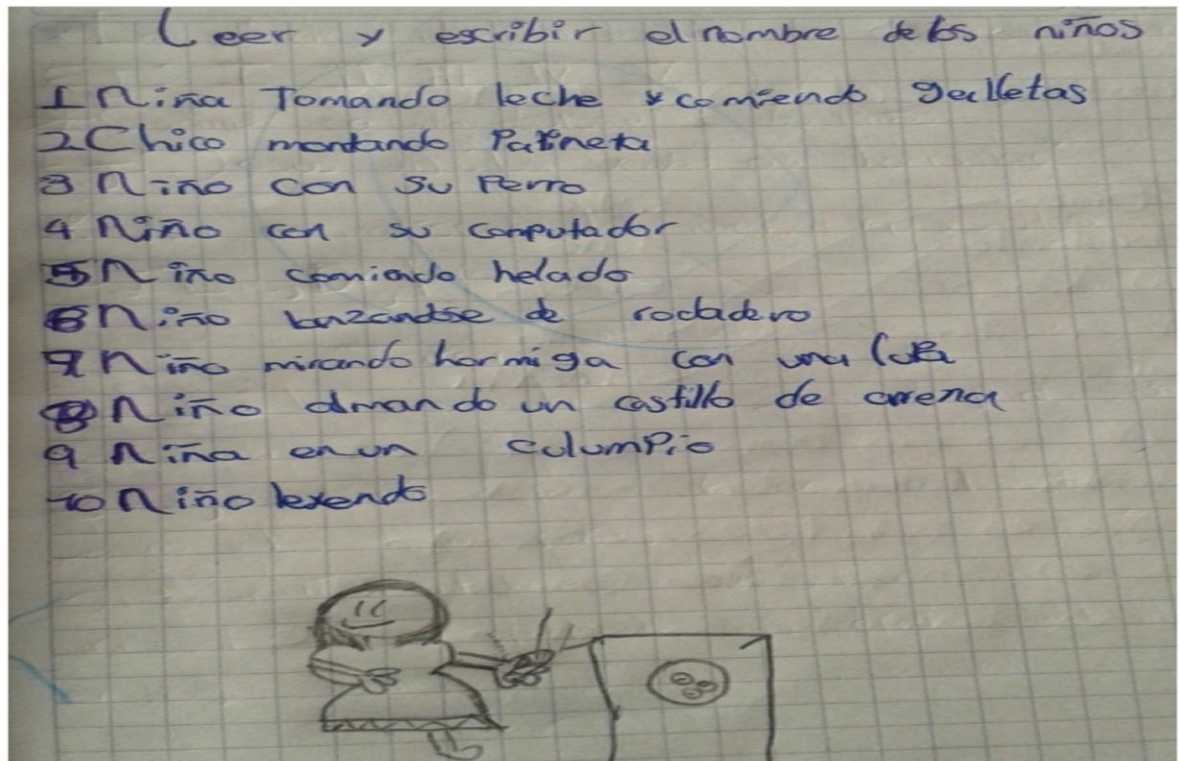 Leer y escribir el nombre de los niños
1 Niña Tomando leche y comiendo galletas
2 Chico montando Patineta
3 Niño con su Perro
4 Niño con su computador
5 Niño comiendo helado
6 Niño lanzandose de rodadero
7 Niño mirando hormiga con una lupa
8 Niño armando un castillo de arena
9 Niña en un columpio
10 Niño leyendo